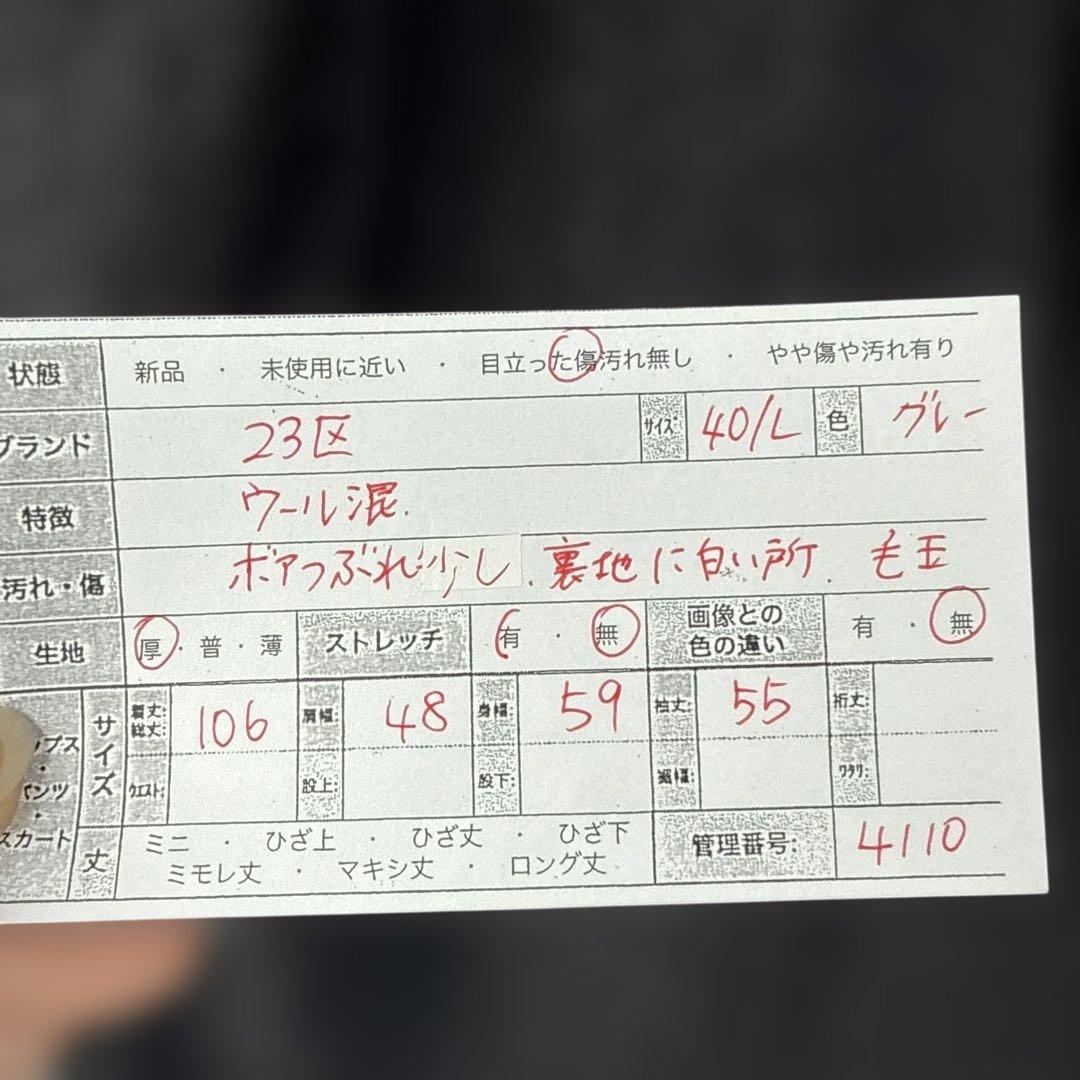 状態 新品 ・ 未使用に近い ・ 目立った傷汚れ無し ・ やや傷や汚れ有り
ブランド 23区 サイズ 40/L 色 グレー
特徴 ウール混.
汚れ・傷 ボアつぶれ少し. 裏地に白い所. 毛玉
生地 厚・普・薄 ストレッチ 有 ・ 無 画像との色の違い 有 ・ 無
サイズ 着丈:総丈: 106 肩幅: 48 身幅: 59 袖丈: 55 裄丈:
ップス・パンツ・スカート ウエスト: 股上: 股下: 裾幅: ワタリ:
丈 ミニ ・ ひざ上 ・ ひざ丈 ・ ひざ下
ミモレ丈 ・ マキシ丈 ・ ロング丈 管理番号: 4110